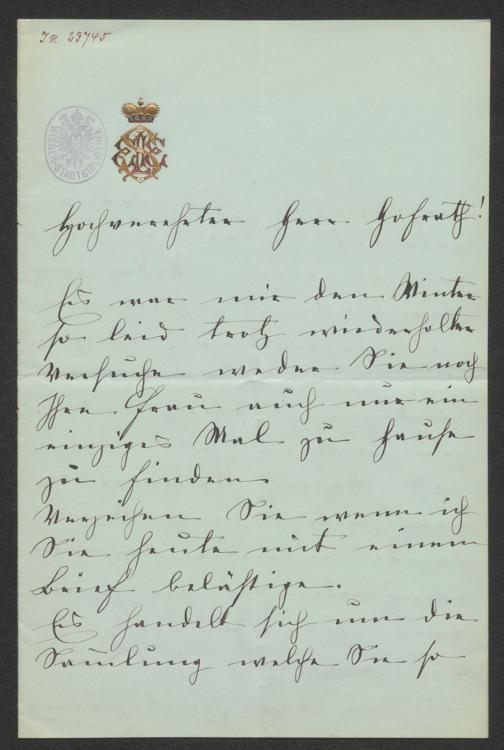 I.N. 23745
WIENER STADTBIBLIOTHEK
Hochverehrter Herr Hofrath!
Es war mir den Winter
so leid trotz wiederholter
Versuche weder Sie noch
Ihre Frau auch nur ein
einziges Mal zu Hause
zu finden
Verzeihen Sie wenn ich
Sie heute mit einem
Brief belästige.
Es handelt sich um die
Sam̄lung welche Sie so